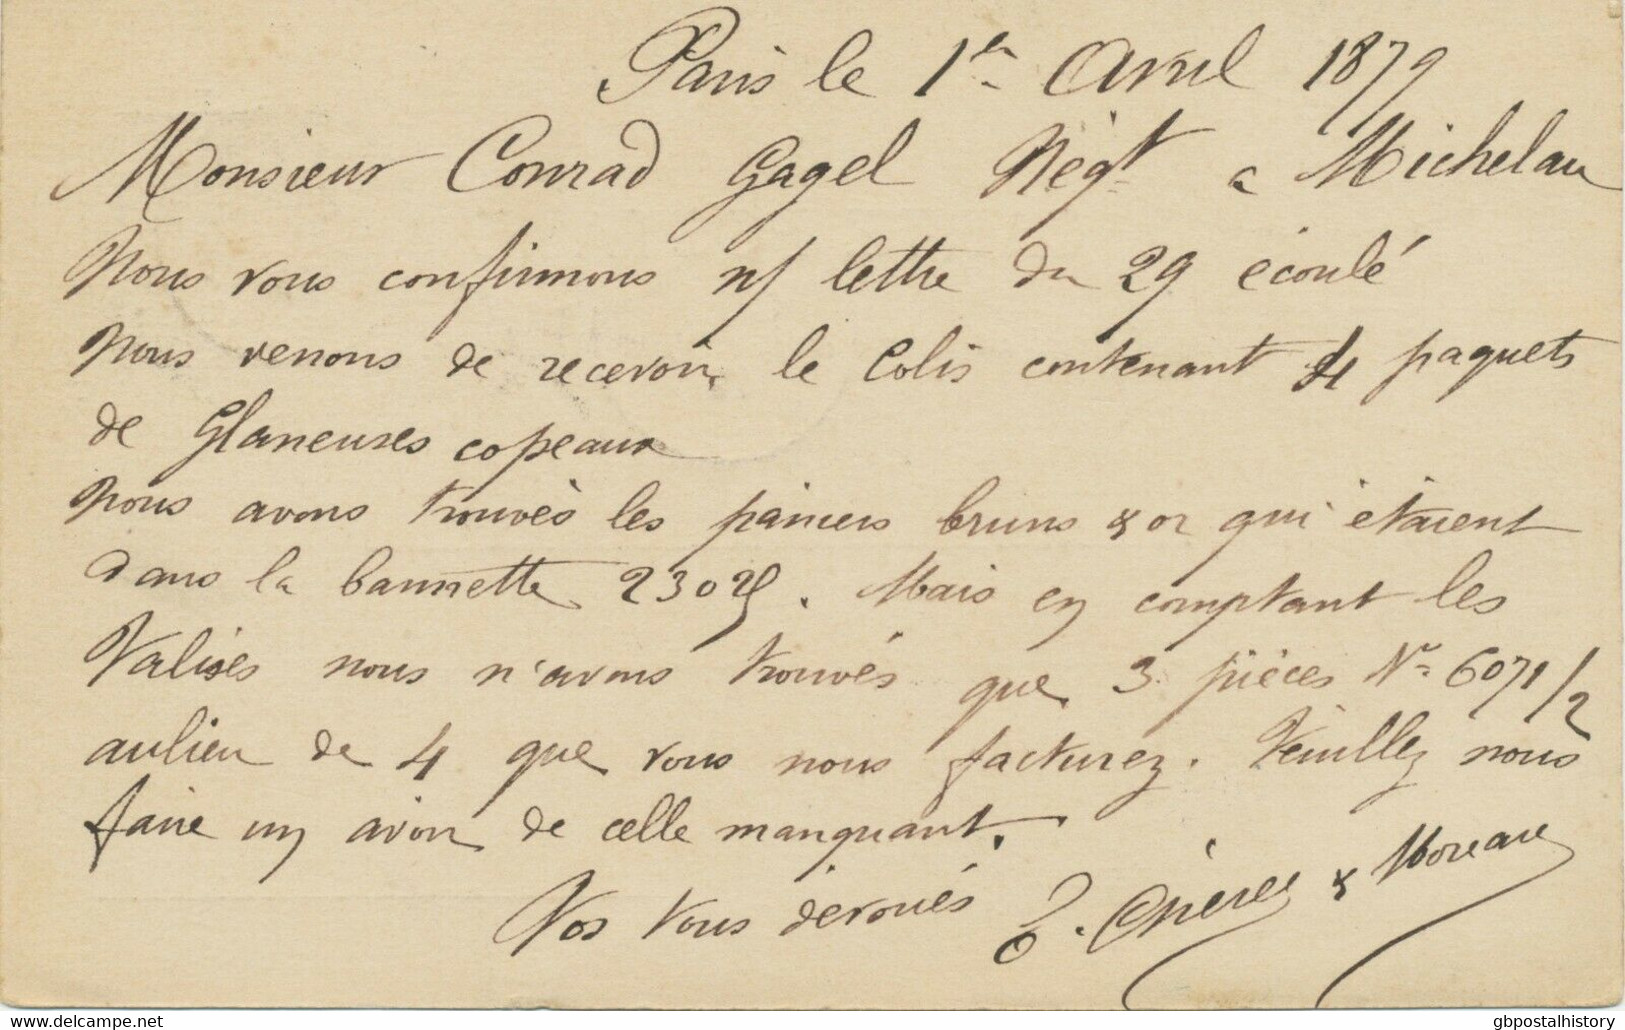 Paris le 1er Avril 1879
Monsieur Conrad Gagel Négt a Michelau
Nous vous confirmons n/ lettre du 29 écoulé
Nous venons de recevoir le Colis contenant 4 paquets
de Glaneuses copeaux
Nous avons trouvés les paniers bruns & or qui étaient
dans la bannette
Mais en comptant les
Valises nous n'avons trouvés que 3 pièces No 6071/2
aulieu de 4 que vous nous facturez. Veuillez nous
faire un avoir de celle manquant.
Vos tous dévoués
& Moreau
www.delcampe.net
gbpostalhistory